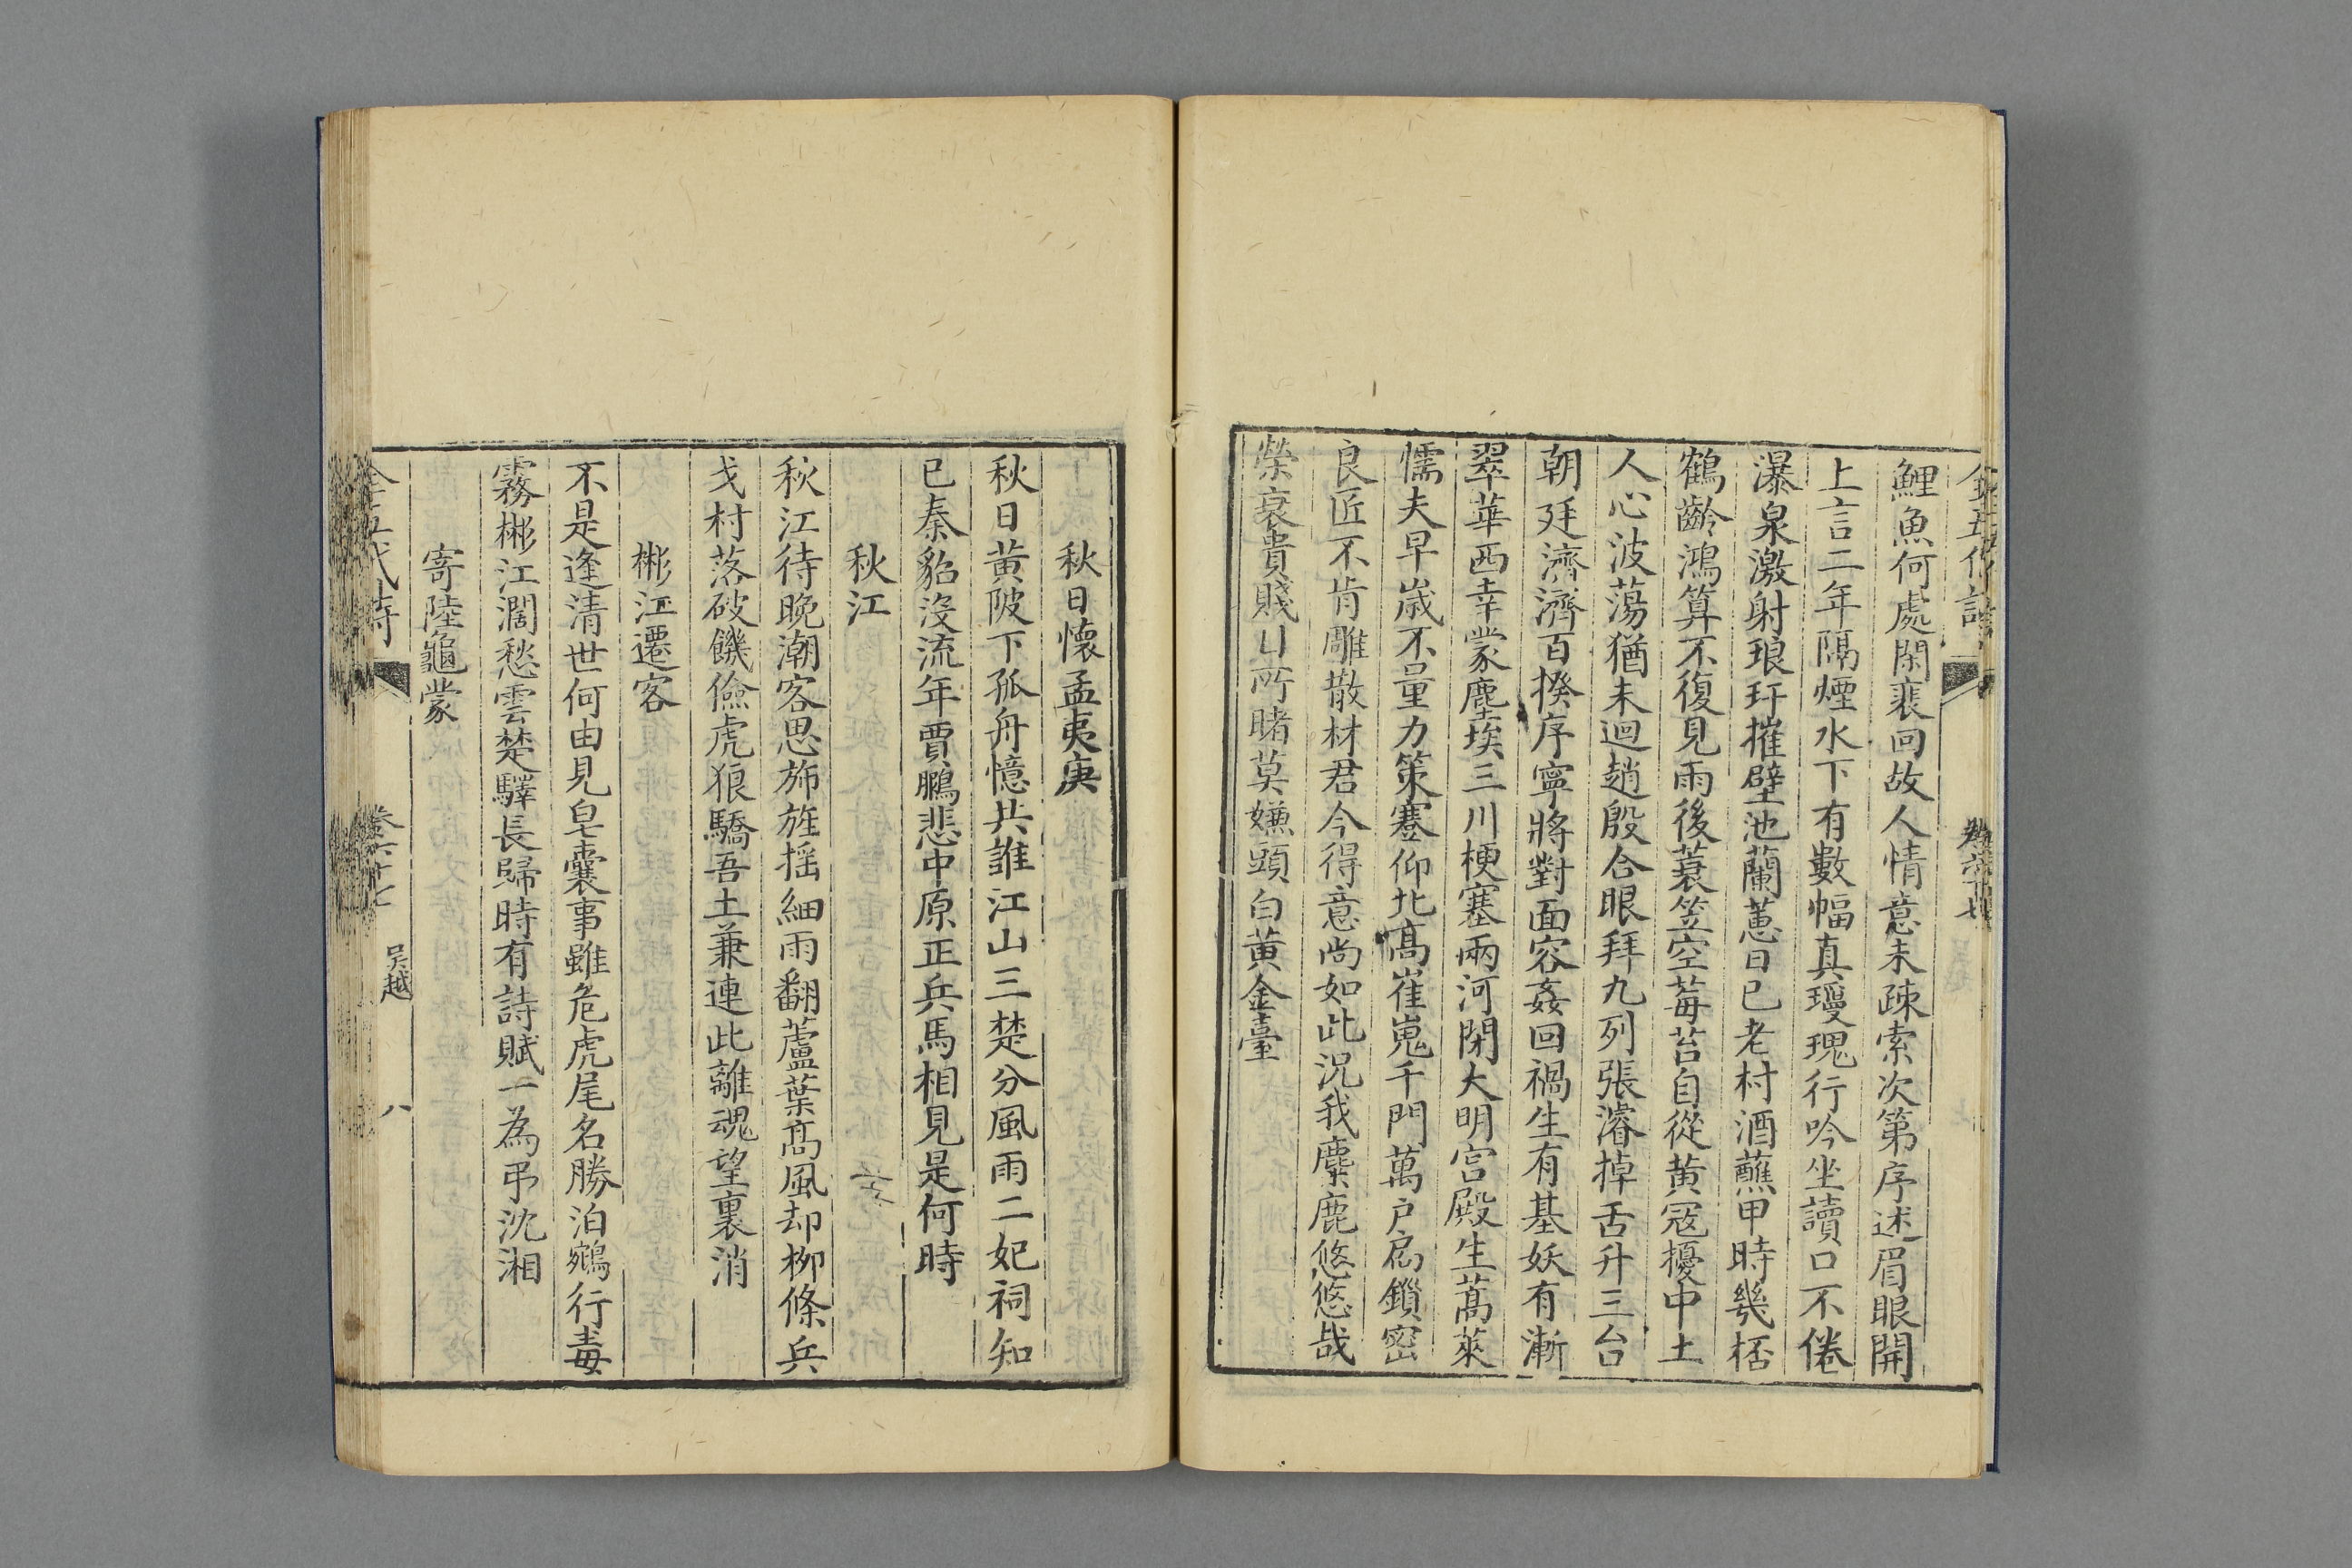 鯉魚何處閑裴回故人情意未疎索次第序述眉眼開
上言二年隔煙水下有數幅真瓊瑰行吟坐讀口不倦
瀑泉激射琅玕摧壁池蘭蕙日已老村酒蘸甲時幾桮
鶴齡鴻算不復見雨後蓑笠空莓苔自從黄冦擾中土
人心波蕩猶未迴趙殷合眼拜九列張濬掉舌升三台
朝廷濟濟百揆序寧將對面容姦回禍生有基妖有漸
翠華西幸蒙塵埃三川梗塞兩河閉大明宫殿生蒿萊
懦夫早歲不量力策蹇仰北髙崔嵬千門萬户扃鎖密
良匠不肯雕散材君今得意尚如此况我麋鹿悠悠哉
榮衰貴賤目所睹莫嫌頭白黄金臺
秋日懷孟夷庚
秋日黄陂下孤舟憶共誰江山三楚分風雨二妃祠知
已秦貂没流年賈鵩悲中原正兵馬相見是何時
秋江
秋江待晚潮客思斾旌揺細雨翻蘆葉髙風却栁條兵
戈村落破饑儉虎狼驕吾土兼連此離魂望裏消
彬江遷客
不是逢清世何由見皂囊事雖危虎尾名勝泊鵷行毒
霧彬江濶愁雲楚驛長歸時有詩賦一為弔沈湘
寄陸龜蒙
全五代詩
卷六十七
吴越
八